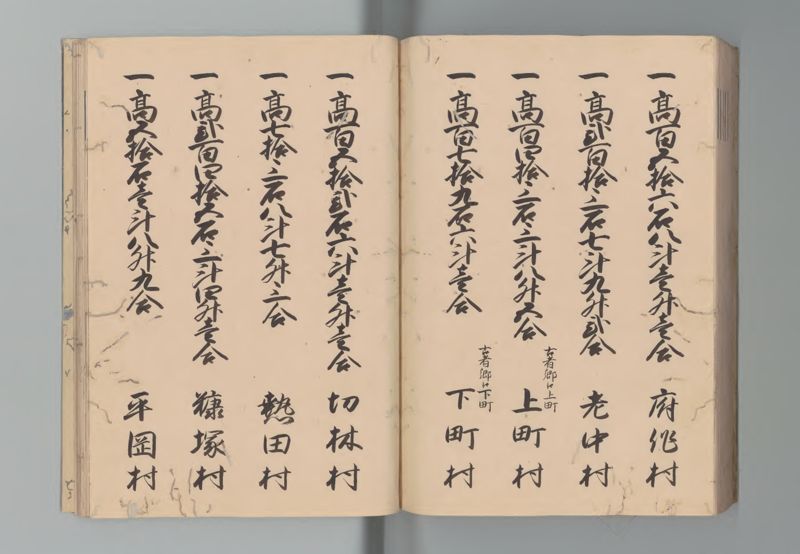 一高百五拾六石八斗壱升壱合 府作村
一高弐百拾三石七斗九升弐合 老中村
一高百四拾三石三斗八升五合 古者郷ヶ上町 上町村
一高百七拾九石六斗壱合 古者郷ヶ下町 下町村
一高百五拾弐石六斗壱升壱合 切林村
一高七拾三石八斗七升三合 熱田村
一高弐百四拾五石三斗四升壱合 糠塚村
一高五拾石壱斗八升九合 平岡村